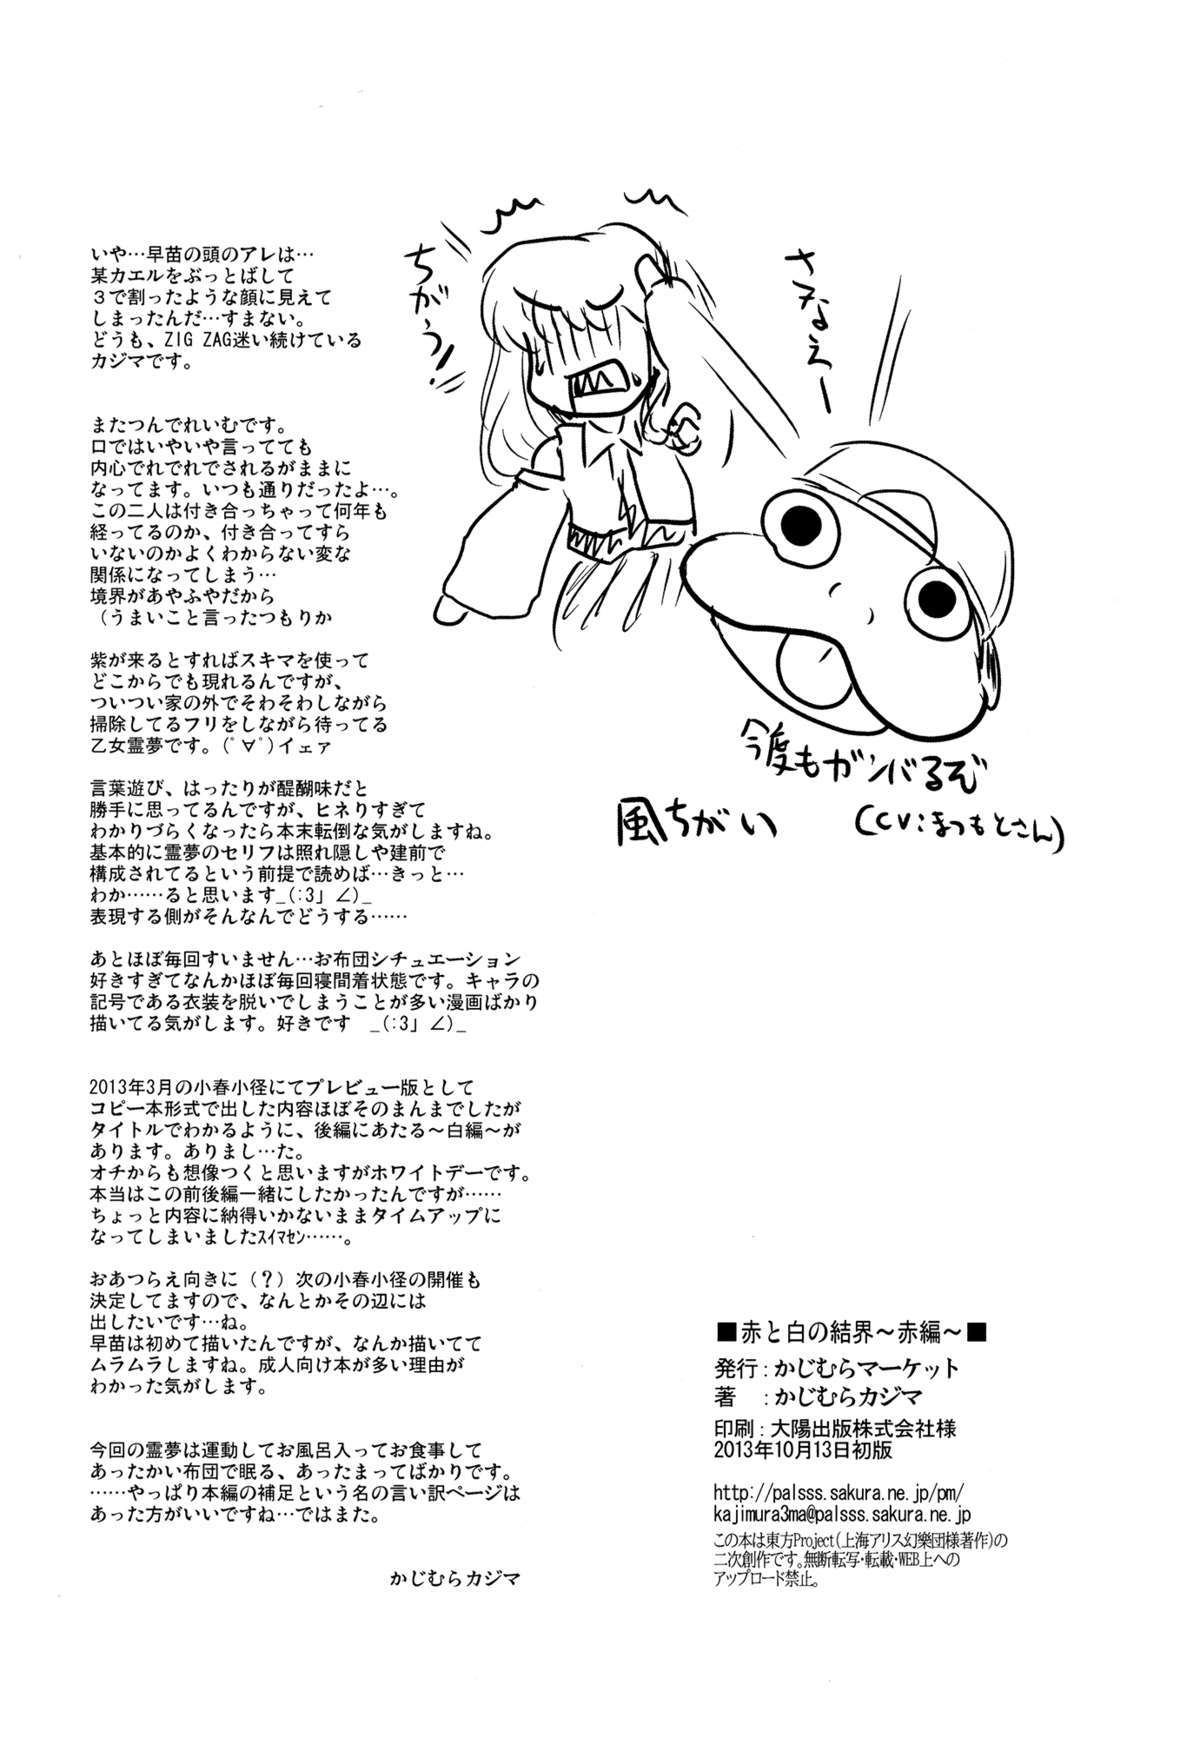 いや…早苗の頭のアレは…
某カエルをぶっとばして
３で割ったような顔に見えて
しまったんだ…すまない。
どうも、ZIG ZAG迷い続けている
カジマです。
またつんでれいむです。
口ではいやいや言ってても
内心でれでれでされるがままに
なってます。いつも通りだったよ…。
この二人は付き合っちゃって何年も
経ってるのか、付き合ってすら
いないのかよくわからない変な
関係になってしまう…
境界があやふやだから
（うまいこと言ったつもりか
紫が来るとすればスキマを使って
どこからでも現れるんですが、
ついつい家の外でそわそわしながら
掃除してるフリをしながら待ってる
乙女霊夢です。(ﾟ∀ﾟ)イェァ
言葉遊び、はったりが醍醐味だと
勝手に思ってるんですが、ヒネりすぎて
わかりづらくなったら本末転倒な気がしますね。
基本的に霊夢のセリフは照れ隠しや建前で
構成されてるという前提で読めば…きっと…
わか……ると思います_(:3」∠)_
表現する側がそんなんでどうする……
あとほぼ毎回すいません…お布団シチュエーション
好きすぎてなんかほぼ毎回寝間着状態です。キャラの
記号である衣装を脱いでしまうことが多い漫画ばかり
描いてる気がします。好きです　_(:3」∠)_
2013年3月の小春小径にてプレビュー版として
コピー本形式で出した内容ほぼそのまんまでしたが
タイトルでわかるように、後編にあたる～白編～が
あります。ありまし…た。
オチからも想像つくと思いますがホワイトデーです。
本当はこの前後編一緒にしたかったんですが……
ちょっと内容に納得いかないままタイムアップに
なってしまいましたｽｲﾏｾﾝ……。
おあつらえ向きに（？）次の小春小径の開催も
決定してますので、なんとかその辺には
出したいです…ね。
早苗は初めて描いたんですが、なんか描いてて
ムラムラしますね。成人向け本が多い理由が
わかった気がします。
今回の霊夢は運動してお風呂入ってお食事して
あったかい布団で眠る、あったまってばかりです。
……やっぱり本編の補足という名の言い訳ページは
あった方がいいですね…ではまた。
かじむらカジマ
ちがう！
さなえー
今度もガンバるぞ
風ちがい　（CV:まつもとさん）
■赤と白の結界～赤編～■
発行：かじむらマーケット
著　：かじむらカジマ
印刷：大陽出版株式会社様
2013年10月13日初版
http://palsss.sakura.ne.jp/pm/
kajimura3ma@palsss.sakura.ne.jp
この本は東方Project(上海アリス幻樂団様著作)の
二次創作です。無断転写・転載・WEB上への
アップロード禁止。